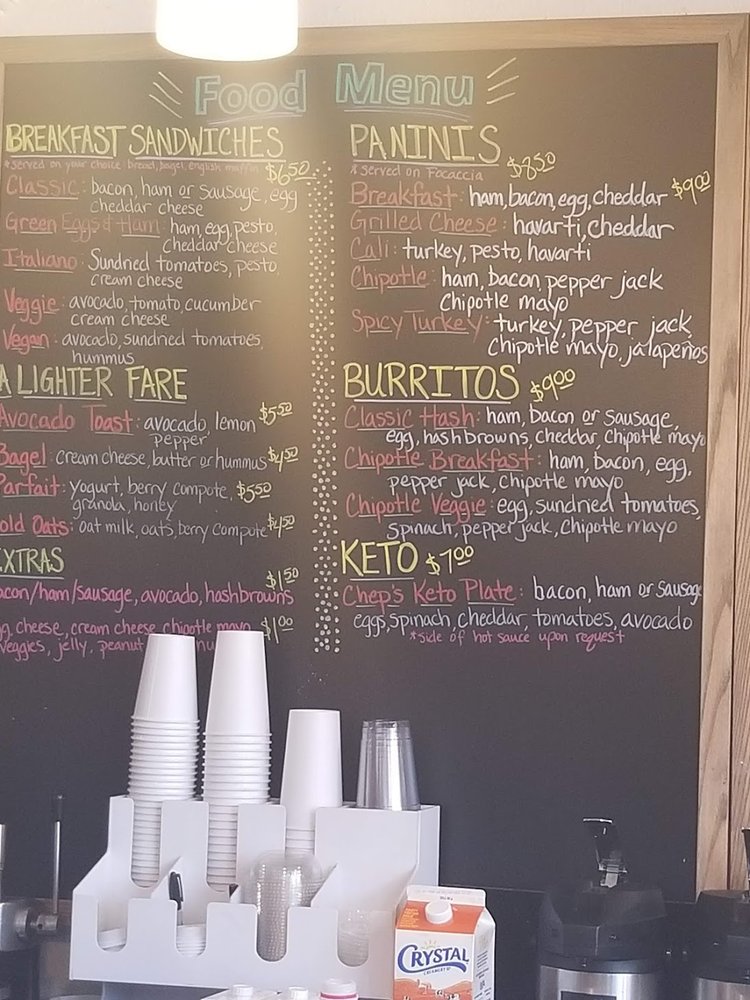 Food Menu
BREAKFAST SANDWICHES
*served on your choice: bread, bagel, english muffin $6.50
Classic: bacon, ham or sausage, egg
cheddar cheese
Green Eggs & Ham: ham, egg, pesto,
cheddar cheese
Italiano: Sundried tomatoes, pesto
cream cheese
Veggie: avocado, tomato, cucumber
cream cheese
Vegan: avocado, sundried tomatoes,
hummus
A LIGHTER FARE
Avocado Toast: avocado, lemon $5.50
pepper
Bagel: cream cheese, butter or hummus $4.50
Parfait: yogurt, berry compote, $5.50
granola, honey
old Oats: oat milk, oats, berry compote $4.50
EXTRAS
acon/ham/sausage, avocado, hashbrowns $1.50
gg, cheese, cream cheese, chipotle mayo $1.00
veggies, jelly, peanut
PANINIS $8.50
*served on Focaccia
Breakfast: ham, bacon, egg, cheddar $9.00
Grilled Cheese: havarti, cheddar
Cali: turkey, pesto, havarti
Chipotle: ham, bacon, pepper jack
Chipotle mayo
Spicy Turkey: turkey, pepper jack,
Chipotle mayo, jalapeños
BURRITOS $9.00
Classic Hash: ham, bacon or sausage,
egg, hashbrowns, cheddar, chipotle mayo
Chipotle Breakfast: ham, bacon, egg,
pepper jack, chipotle mayo
Chipotle Veggie: egg, sundried tomatoes,
spinach, pepper jack, Chipotle mayo
KETO $7.00
Chep's Keto Plate: bacon, ham or sausage
eggs, spinach, cheddar, tomatoes, avocado
*side of hot sauce upon request
CRYSTAL
CREAMERY